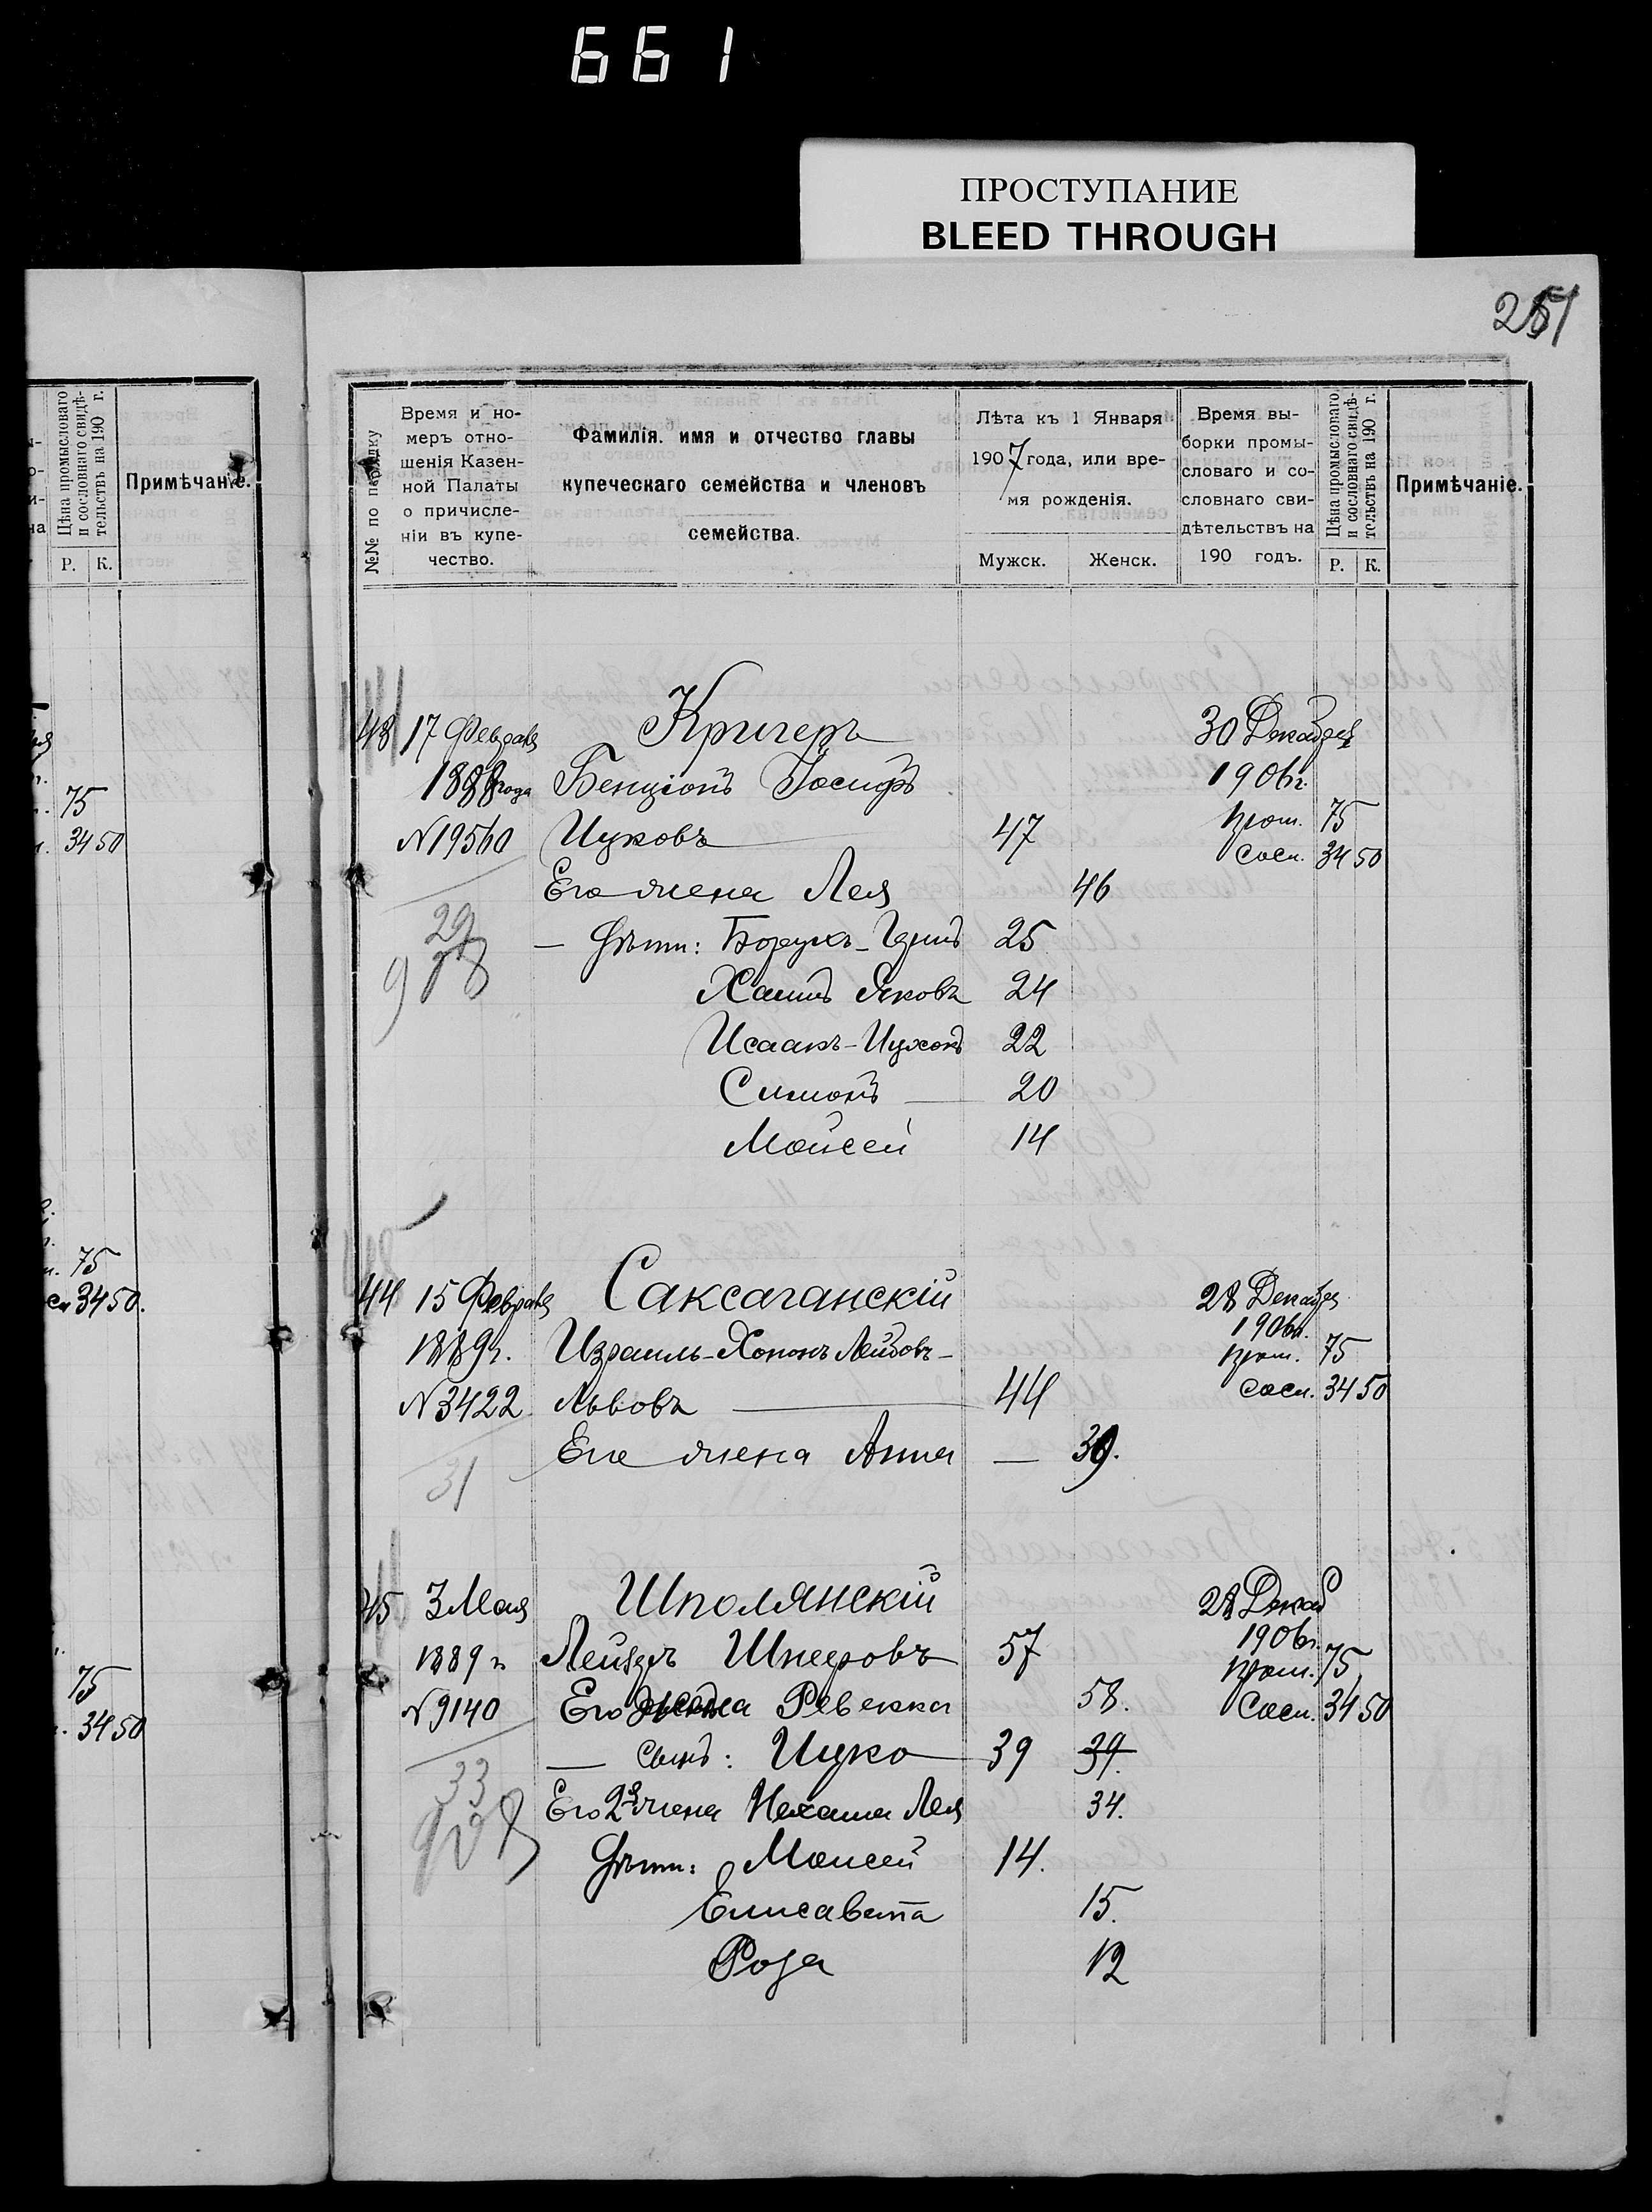 661
ПРОСТУПАНИЕ
BLEED THROUGH
251
Цѣна промысловаго и сословнаго свидѣ-тельствъ на 190 г.
Р. К.
Примѣчаніе.
75
34 50
75
34 50.
75
34 50
№№ по порядку
Время и но-
меръ отно-
шенія Казен-
ной Палаты
о причисле-
ніи въ купе-
чество.
Фамилія. имя и отчество главы
купеческаго семейства и членовъ
семейства.
Лѣта къ 1 Января
1907 года, или вре-
мя рожденія.
Мужск. Женск.
Время вы-
борки промы-
словаго и со-
словнаго сви-
дѣтельствъ на
190 годъ.
Цѣна промысловаго
и сословнаго свидѣ-
тельствъ на 190 г.
Р. К.
Примѣчаніе.
Кригеръ
17 Февраля 30 Декабря
1888 года Бенціонъ Іосифъ 1906 г.
N 19560 Ицковъ 47 пром. 75
сосл. 34 50
Его жена Лея 46
29
— Дѣти: Борухъ- 25
908
Хаимъ Яковъ 24
Исаакъ-Ицхокъ 22
Симонъ 20
Моисей 14
44 15 Февраля Саксаганскій 28 Декабря
1889 г. Израиль-Хононъ Лейбовъ- 1906 г.
пром. 75
N 3422 Львовъ 44 сосл. 34 50
Его жена Анна — 39.
31
45 3 Мая Шполянскій 28 Декаб
1889 г. Лейзеръ Шнееровъ 57 1906 г.
пром. 75
N 9140 Его жена Ревекка 58. Сосл. 34 50
— сынъ: Ицко 39 39.
33
Его 2я жена Нехама Лея 34.
908
Дѣти: Моисей 14.
Елисавета 15.
Роза 12